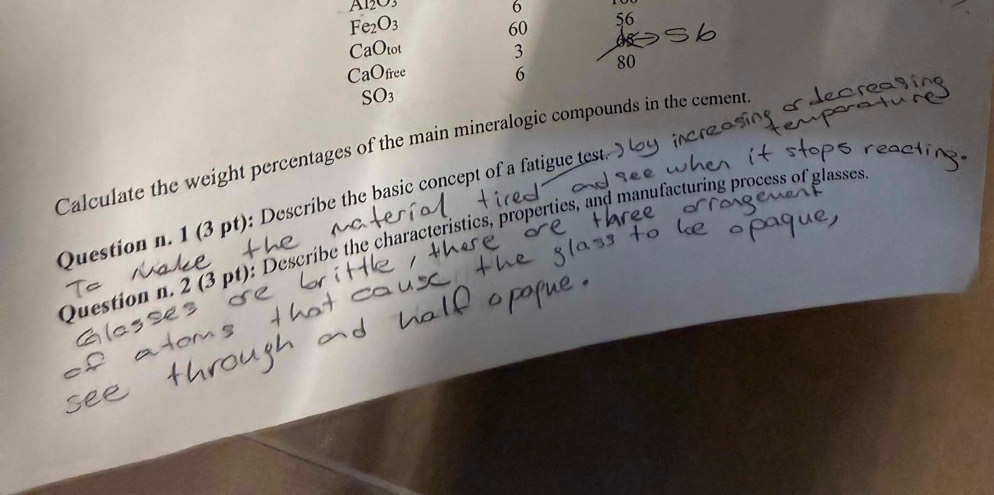 Al2O3 6
Fe2O3 60 56
CaOtot 3 56
CaOfree 6 80
SO3
Calculate the weight percentages of the main mineralogic compounds in the cement.
Question n. 1 (3 pt): Describe the basic concept of a fatigue test. by increasing or decreasing temperature
To make the material tired and see when it stops reacting.
Question n. 2 (3 pt): Describe the characteristics, properties, and manufacturing process of glasses.
Glasses are brittle, there are three arrangement
of atoms that cause the glass to be opaque,
see through and half opaque.